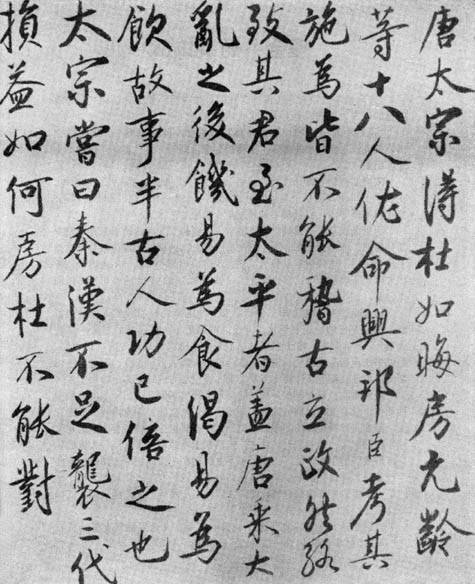 唐太宗得杜如晦房元齡
等十八人佐命興邦臣考其
施為皆不能稽古立政然絡
致其君至太平者盖唐乘大
亂之後饑易為食渴易為
飲故事半古人功已倍之也
太宗嘗曰秦漢不足襲三代
損益如何房杜不能對